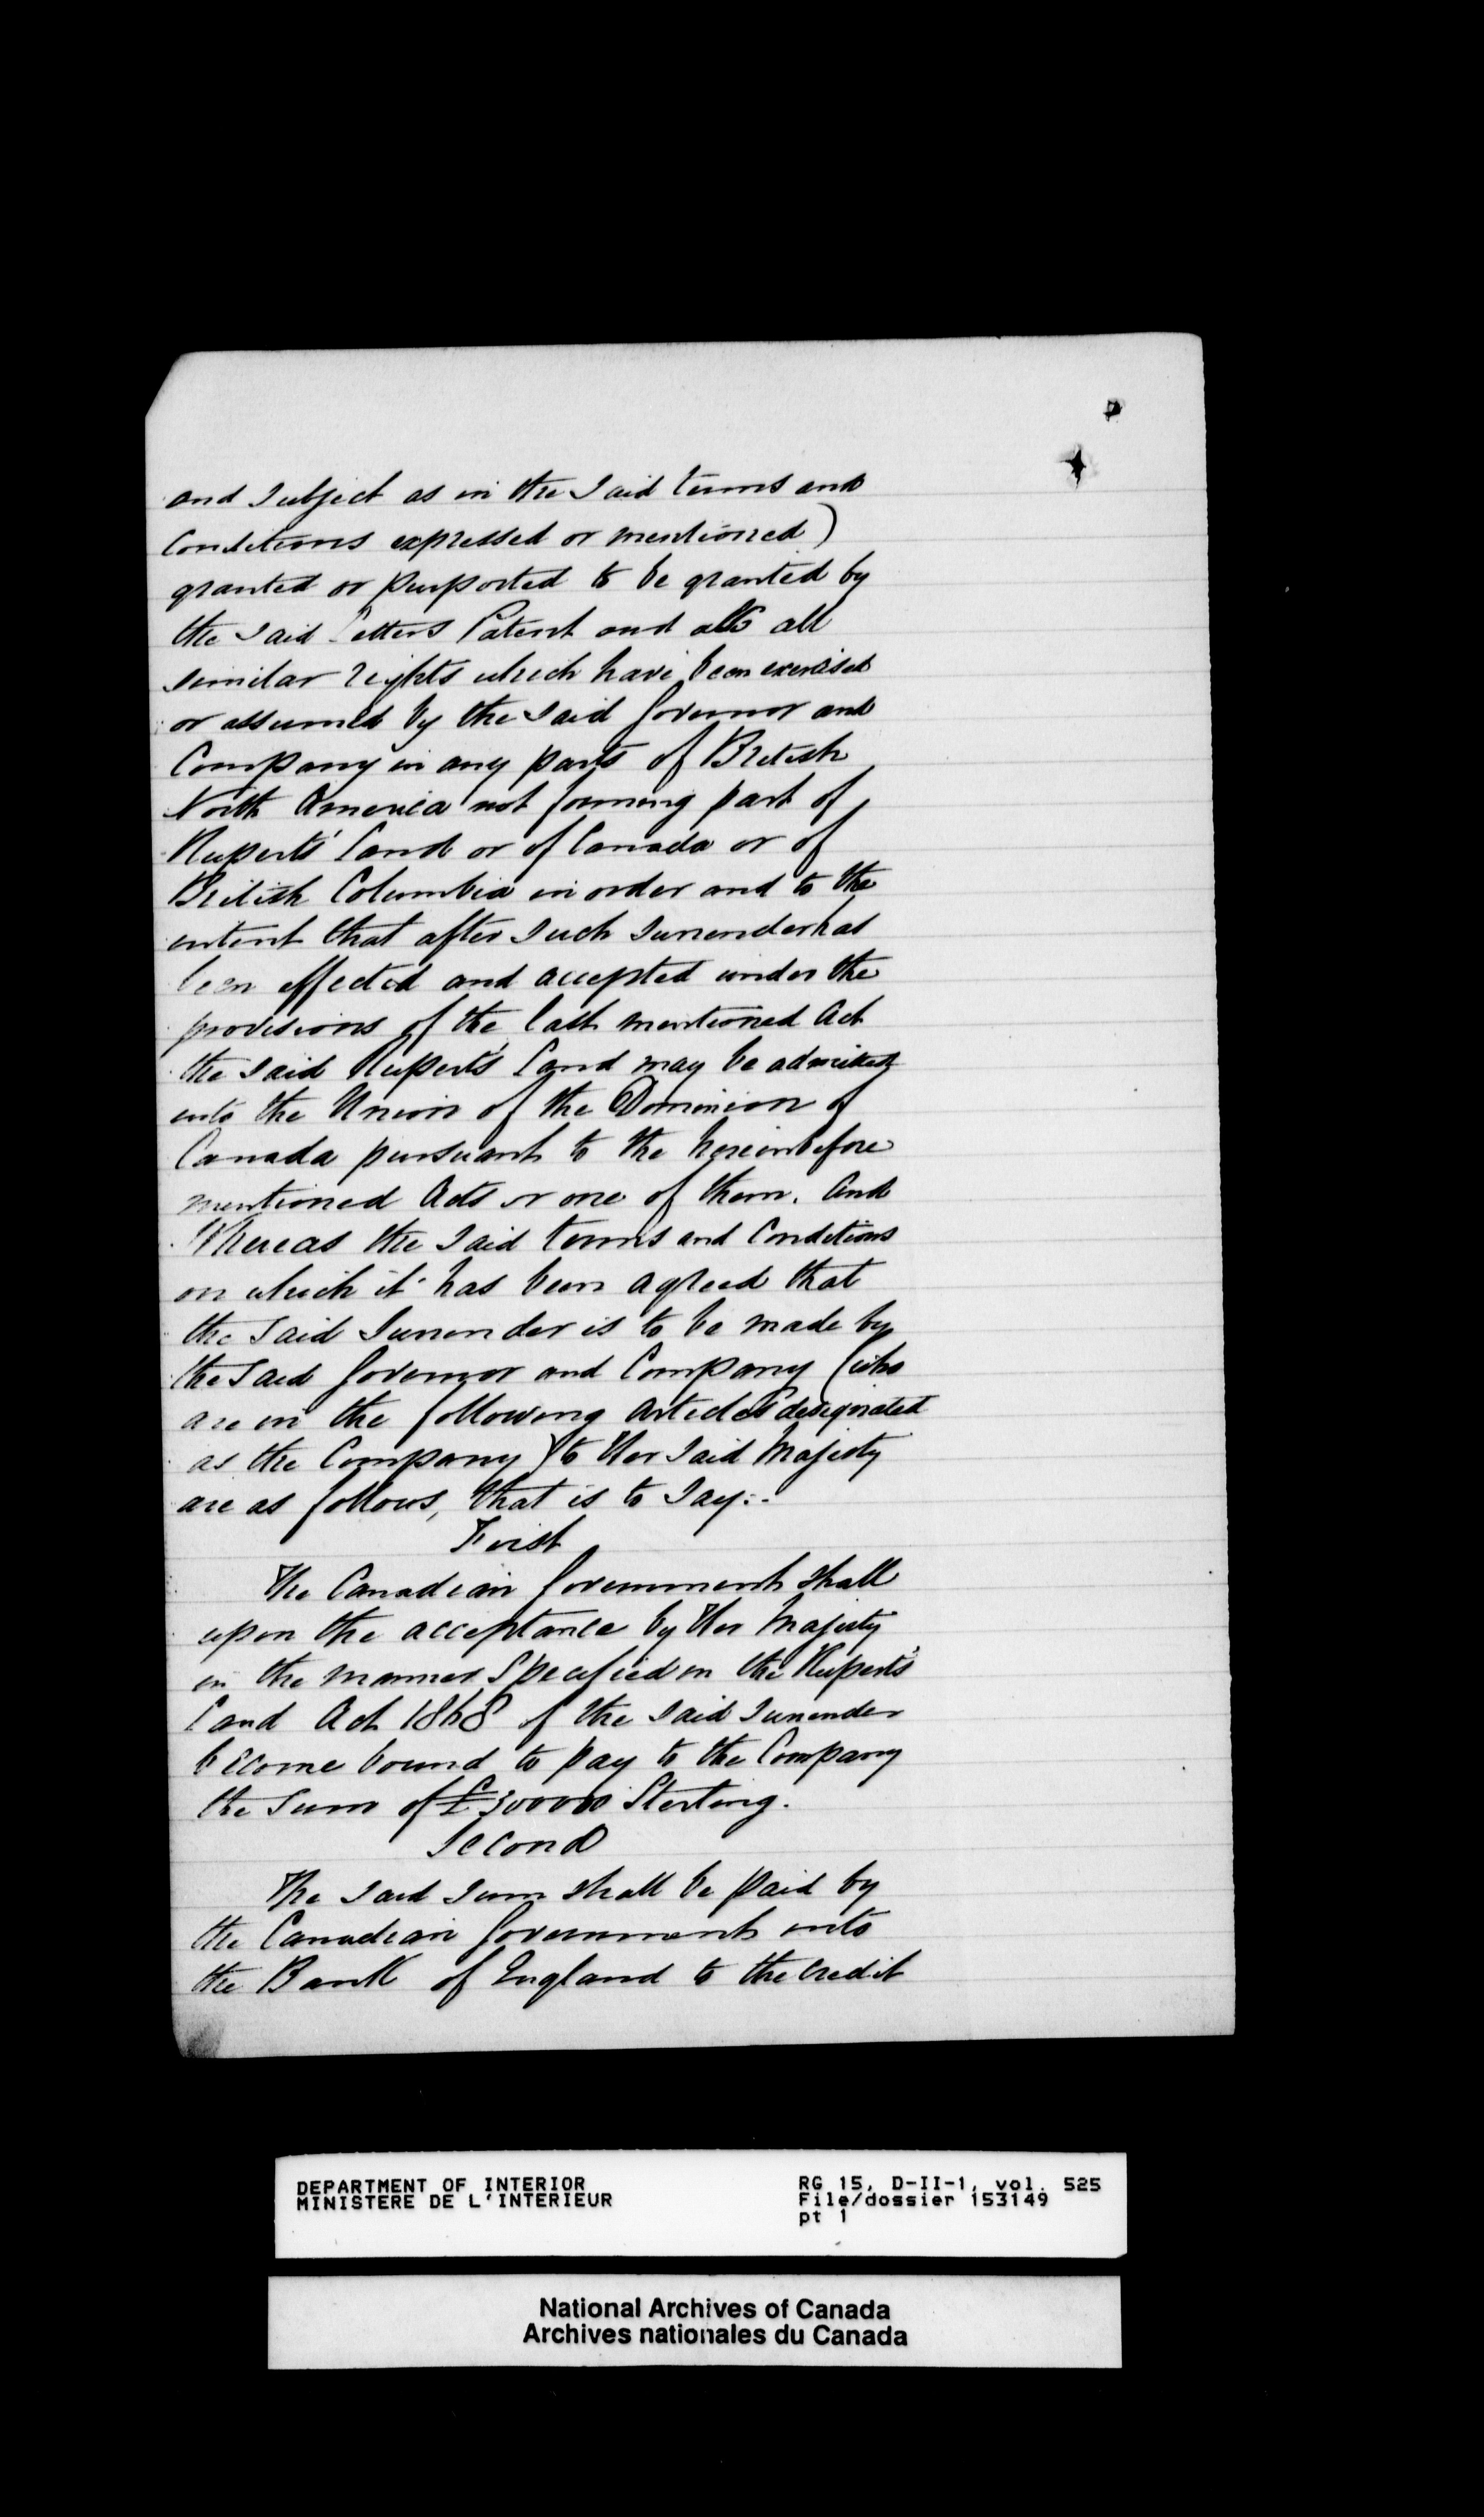 and subject as in the said terms and
Conditions expressed or mentioned)
granted or purported to be granted by
the said Letters Patent and also all
similar rights which have been exercised
or assumed by the said Governor and
Company in any parts of British
North America not forming part of
Ruperts' Land or of Canada or of
British Columbia in order and to the
intent that after such surrender has
been effected and accepted under the
provisions of the last mentioned Act
the said Rupert's Land may be admitted
into the Union of the Dominion of
Canada pursuant to the hereinbefore
mentioned Acts or one of them. And
Whereas the said terms and Conditions
on which it has been agreed that
the said Surrender is to be made by
the said Governor and Company (who
are in the following articles designated
as the Company) to Her said Majesty
are as follows, that is to say:-
First
The Canadian Government shall
upon the acceptance by Her Majesty
in the manner Specified in the Rupert's
Land Act 1868 of the said surrender
become bound to pay to the Company
the Sum of £300000 Sterling.
Second
The said sum shall be paid by
the Canadian Government into
the Bank of England to the credit
DEPARTMENT OF INTERIOR
MINISTERE DE L'INTERIEUR
RG 15, D-II-1, vol. 525
File/dossier 153149
pt 1
National Archives of Canada
Archives nationales du Canada